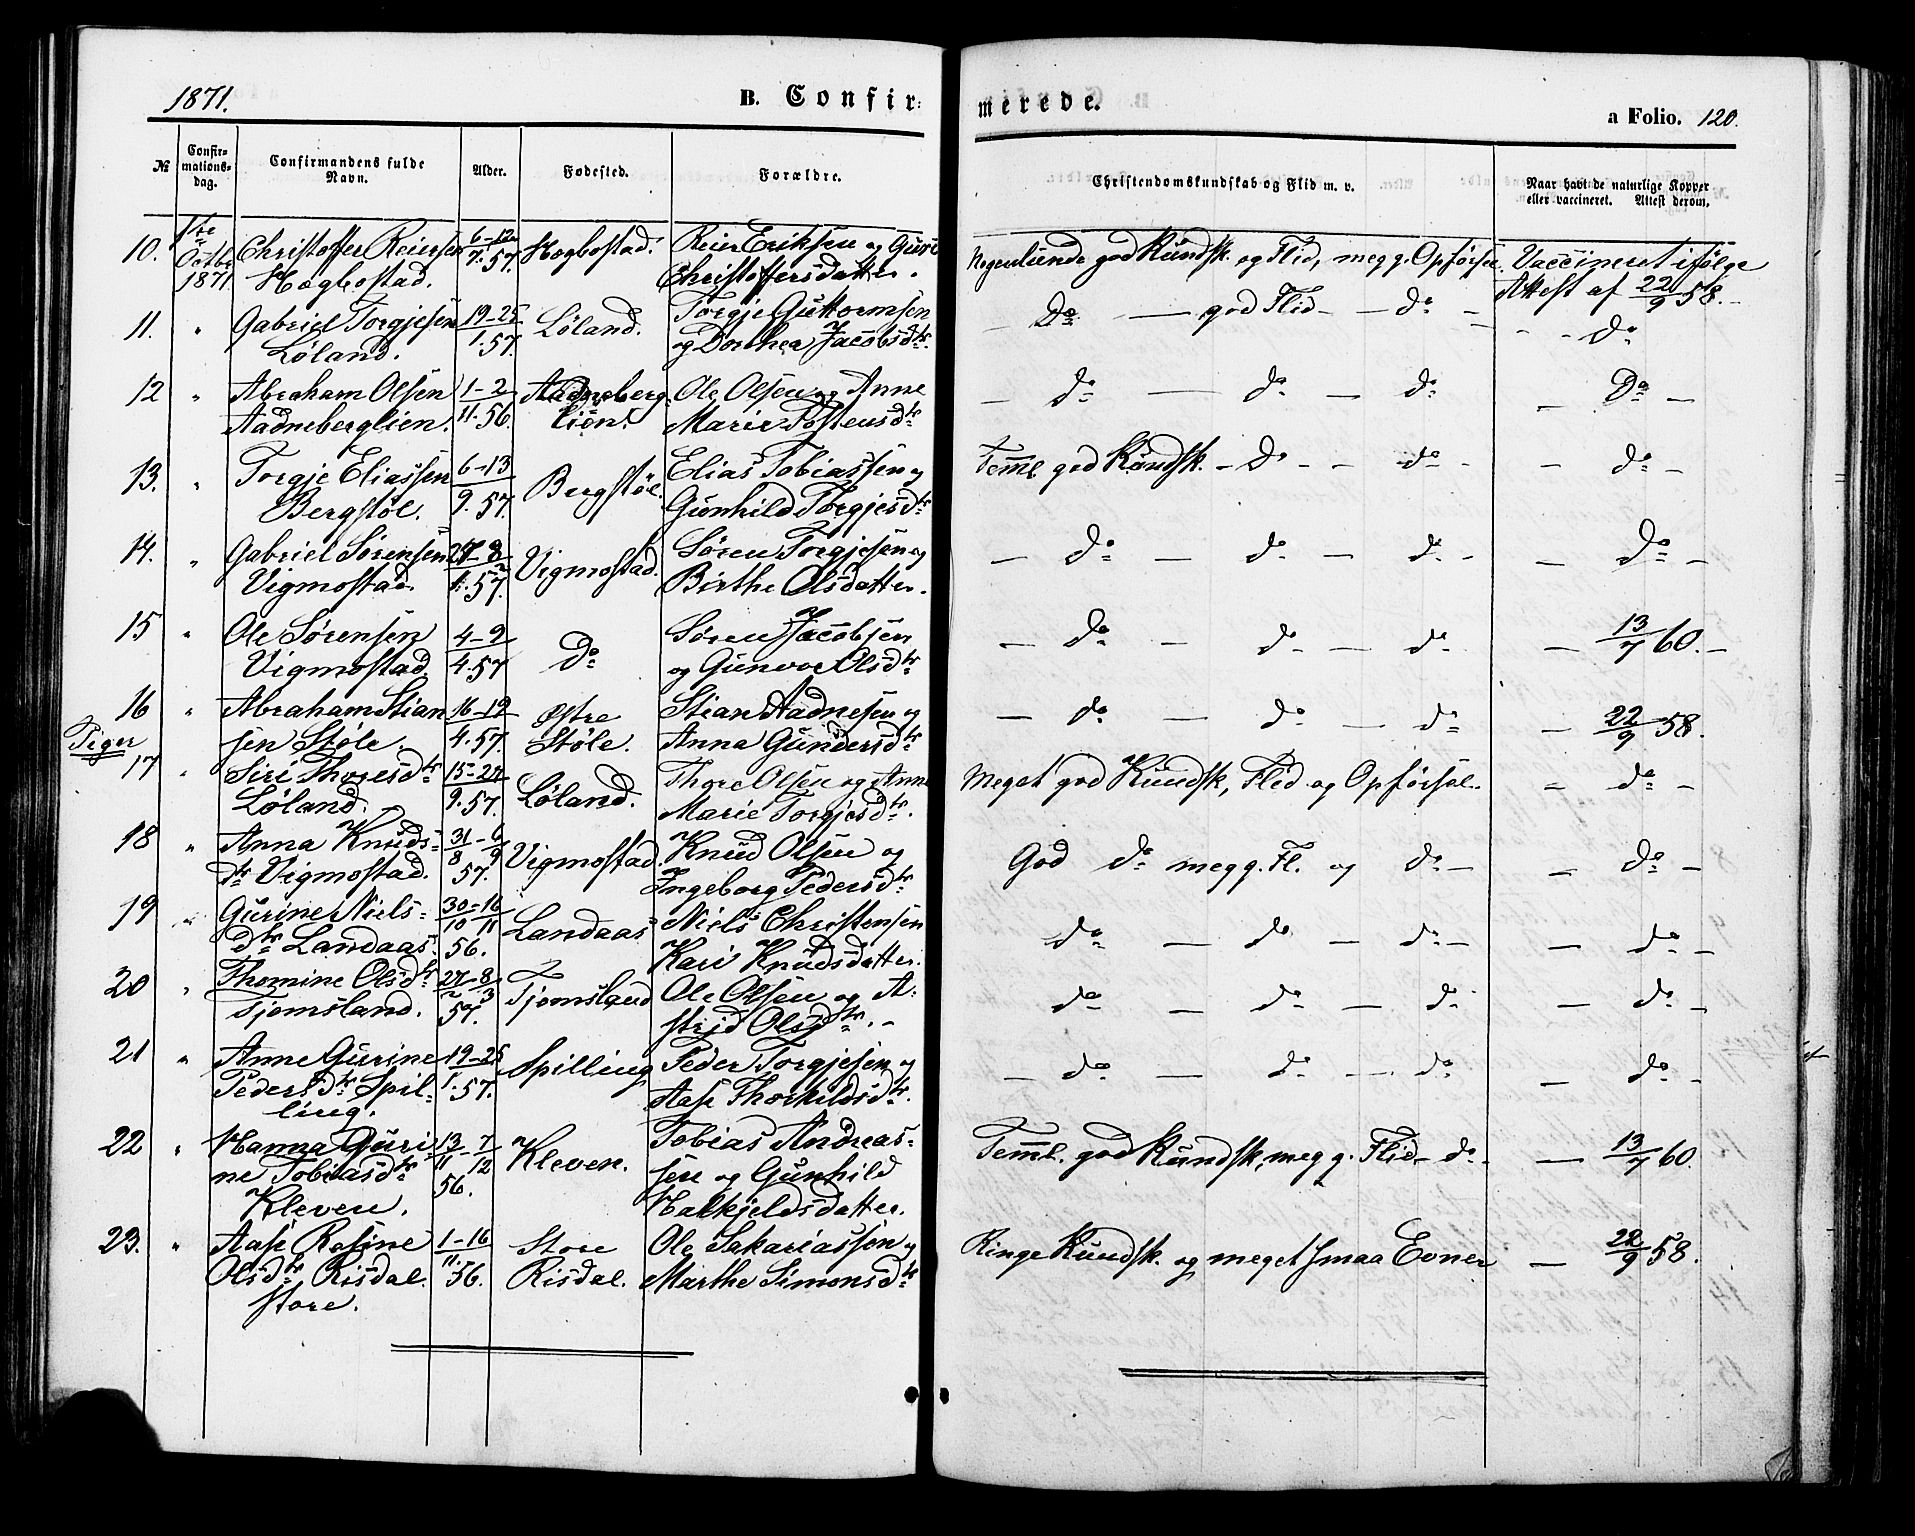 1871.
B. Confir:
merede.
a Folio. 120.
№
Confir-
mations-
dag.
Confirmandens fulde
Navn.
Alder.
Fødested.
Forældre.
Christendomskundskab og Flid m. v.
Naar havt de naturlige Kopper
eller vaccineret. Attest derom.
10. 1ste Octbr 1871 Christoffer Reiersen 6-12 Hægbostad. Reier Eriksen og Guro Nogenlunde god Kundsk. og Flid, meg g. Opførsel. Vaccineret ifølge
Hægbostad. 7. 57. Christoffersdatter. Attest af 22/9 58.
11. " Gabriel Torgjesen 19-25 Løland. Torgje Guttormsen - Do - god Flid - - do - - - do
Løland. 1. 57. og Dorthea Jacobsdtr.
12 " Abraham Olsen 1-2 Aadneberg Ole Olsen og Anne - do - do - do - Do -
Aadneberglien. 11. 56. lien. Marie Tostensdtr
13. " Torgje Eliassen 6-13 Bergstøl. Elias Tobiassen og Teml. god Kundsk. - Do - - do - - do -
Bergstøl. 9. 57. Gunhild Torgjesdtr
14. " Gabriel Sørensen 8 Vigmostad. Søren Torgjesen og - do - do - do - - do -
Vigmostad. 57. Birthe Olsdatter.
15 " Ole Sørensen 4-9 Do Søren Jacobsen - do - do - do - 13/7 60. -
Vigmostad. 4. 57 og Gunvor Olsdtr
16 " Abraham Stian 16-19 Østre Stian Aadnesen og - do - do - do - 22/9 58.
sen Støle. 4. 57. Støle. Anna Gundersdtr
Piger
17 " Siri Thoresdtr 15-27 Løland. Thore Olsen og Anne Meget god Kundsk, Flid og Opførsel. - do -
Løland. 9. 57. Marie Torgjesdtr.
18 " Anna Knuds- 31/8-6/9 Vigmostad. Knud Olsen og God do meg g. Fl. og do - - do -
dtr Vigmostad. 57. Ingeborg Pedersdtr
19 " Gurine Niels- 30/10-16/11 Landaas Niels Christensen do - do - do - - do -
dtr Landaas. 56. Kari Knudsdatter.
20 " Thomine Olsdtr 27/2-8/3 Tjomsland Ole Olsen og A- do - do - do - do -
Tjomsland. 57. strid Olsdtr. -
21 " Anne Gurine 19-25 Spilling Peder Torgjesen og - do - do - do - do -
Pedersdtr Spil- 1. 57. Aase Thorkildsdtr.
ling.
22 " Hanna Guri 13/11-7/12 Kleven. Tobias Andreas- Teml. god Kundsk, meg g. Flid - do - - 13/7 60.
ne Tobiasdtr 56. sen og Gunhild
Kleven. Halkjeldsdatter.
23. " Aase Rosine 1-16 Store Ole Sakariassen og Ringe Kundsk. og meget smaa Evner - 22/9 58.
Olsdtr Risdal 11. 56. Risdal. Marthe Simonsdtr
store.